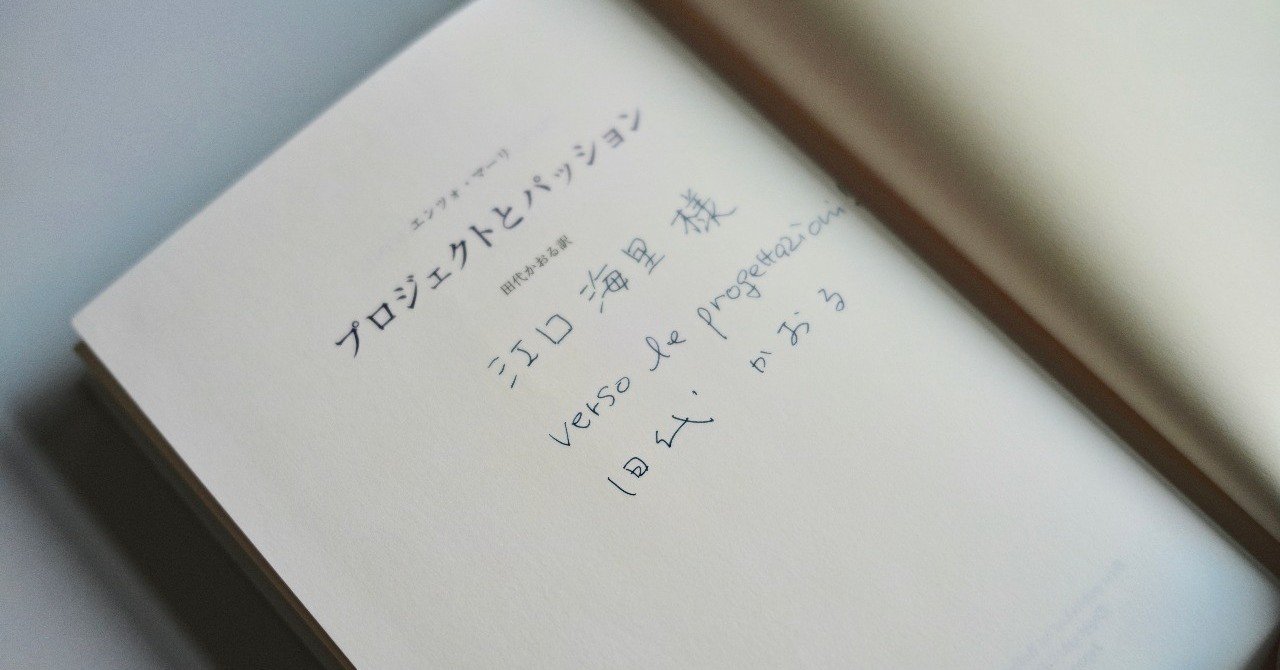 エンツォ・マーリ
プロジェクトとパッション
田代かおる訳
江口 海里 様
verso le progettazioni
田代 かおる